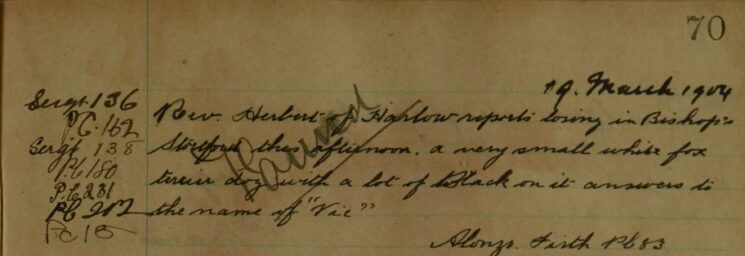 70
19. March 1904
Sergt 136
P.C. 162
Sergt 138
P.C 180
P.C 231
PC 202
PC 15
Rev. Herbert of Harlow reports losing in Bishop=
Stortford this afternoon. a very small white fox
terrier dog with a lot of Black on it answers to
the name of "Vic"
Found
Alonzo. Firth PC 83